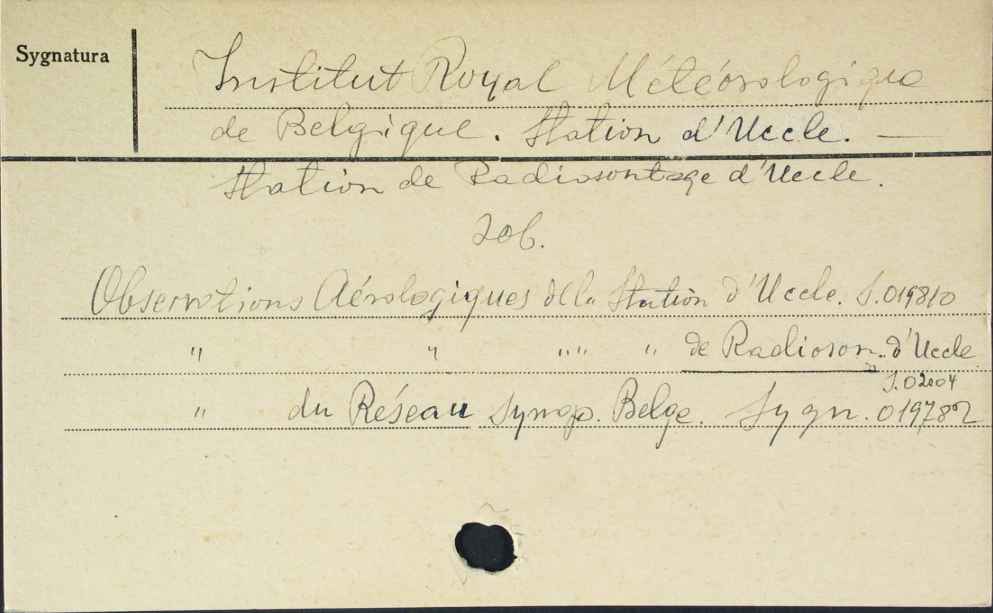 Sygnatura
Institut Royal Météorologique
de Belgique. Station d'Uccle. —
Station de Radiosontage d'Uccle.
Zob.
Observations Aérologiques de la Station d'Uccle. S.019810
" " "" " de Radioson. d'Uccle
S.02204
" du Réseau Synop. Belge. Sygn. 019782